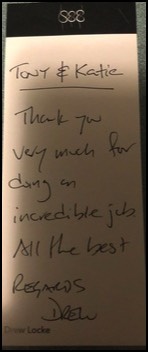 Tony & Katie
Thank you
very much for
doing an
incredible job
All the best
REGARDS
DREW
Drew Locke